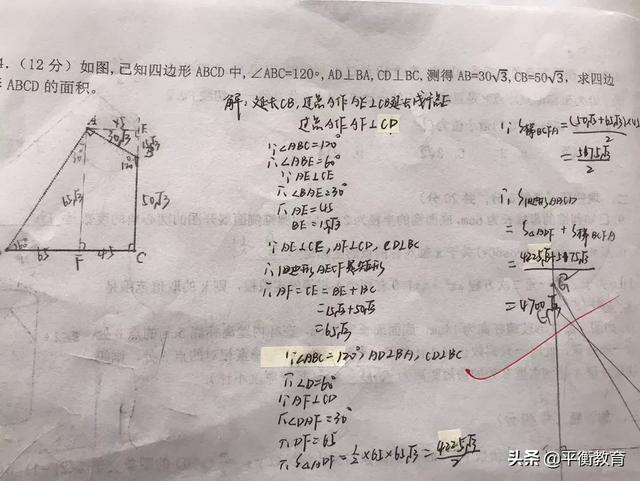 4.(12分)如图,已知四边形ABCD中,∠ABC=120°,AD⊥BA,CD⊥BC,测得AB=30√3,CB=50√3,求四边
形ABCD的面积。
A
45
E
30√3
15√3
30°
120°
65√3
50√3
60°
65
F
45
C
解:延长CB,过点A作AE⊥CB延长线于点E
过点A作AF⊥CD
∵∠ABC=120°
∴∠ABE=60°
∵AE⊥CE
∴∠BAE=30°
∴AE=45
BE=15√3
∵AE⊥CE,AF⊥CD,CD⊥BC
∴四边形AECF是矩形
∴AF=CE=BE+BC
=15√3+50√3
=65√3
∵∠ABC=120°,AD⊥BA,CD⊥BC
∴∠D=60°
∵AF⊥CD
∴∠DAF=30°
∴DF=65
∴S△ADF=1/2×65×65√3=4225√3/2
∴S梯BCFA=(50√3+65√3)×45/2
=5175√3/2
∴S四边形ABCD
=S△ADF+S梯BCFA
=4700√3
头条@平衡教育